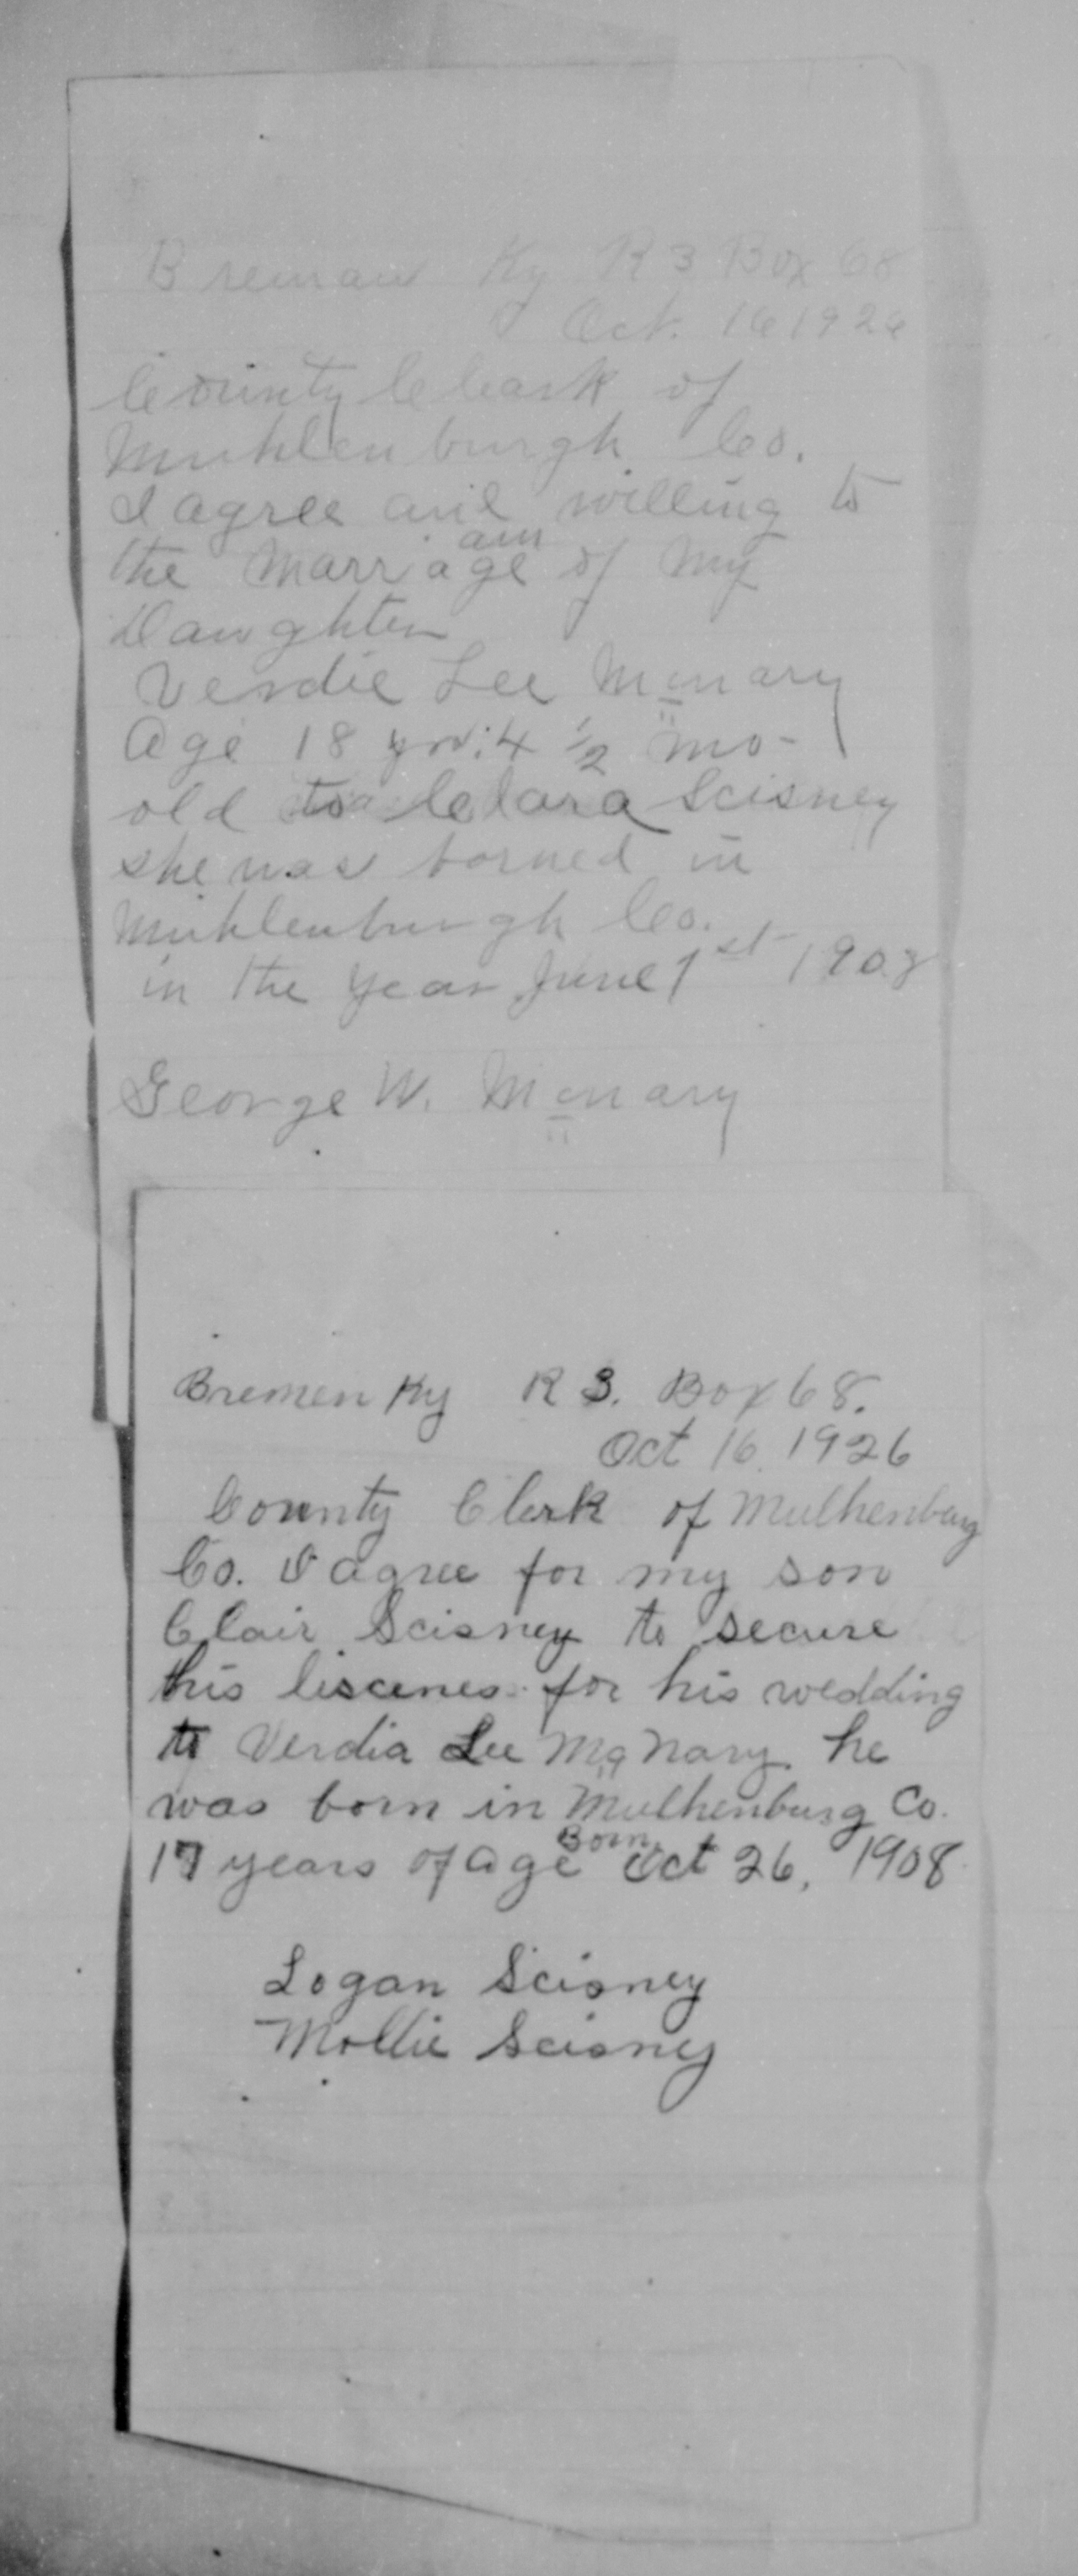 Breman Ky R 3 Box 68
Oct. 16 1926
County Cleark of
Muhlenburgh Co.
I agree and willing to
am
the Marriage of My
Daughter
Verdie Lee McNary
Age 18 yrs: 4 1/2 mo-
old to Clara Scisney
she was borned in
Muhlenburgh Co.
in the year June 1st 1908
George W. McNary
Bremen Ky R 3. Box 68.
Oct 16. 1926
County Clerk of Mulhenburg
Co. I agree for my son
Clair Scisney to secure
his liscenes for his wedding
to Verdia Lee McNary he
was born in Mulhenburg Co.
Born
17 years of age Oct 26, 1908
Logan Scisney
Mollie Scisney